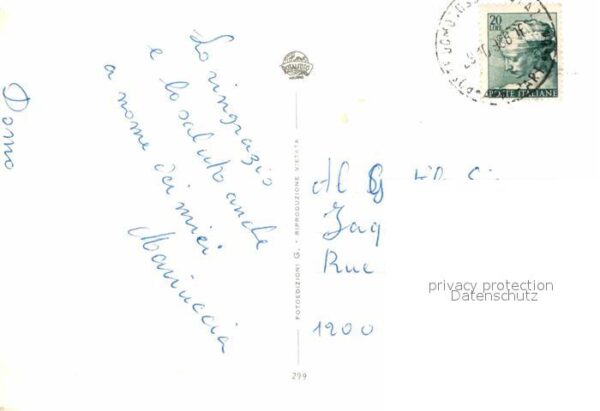 Domo
Lo ringrazio
e lo saluto anche
a nome dei miei
Mariuccia
FOTOEDIZIONI G. • RIPRODUZIONE VIETATA
299
20
LIRE
POSTE ITALIANE
Al
Jaq
Rue
1200
privacy protection
Datenschutz